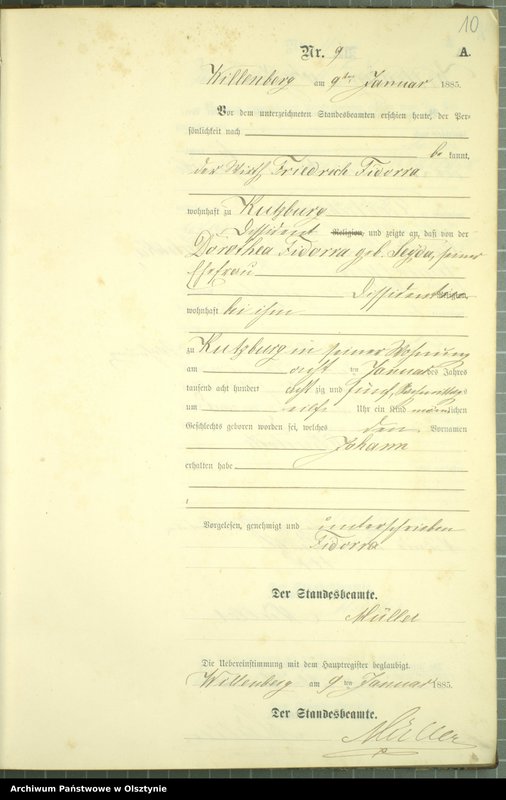 10
Nr. 9 A.
Willenberg am 9ten Januar 1885.
Vor dem unterzeichneten Standesbeamten erschien heute, der Per-
sönlichkeit nach
be kannt,
der Wirth Friedrich Fidorra
wohnhaft zu Kutzburg
Dissident Religion, und zeigte an, daß von der
Dorothea Fidorra geb. seiner
Ehefrau
Dissidentin Religion,
wohnhaft bei ihm
zu Kutzburg in seiner Wohnung
am acht ten Januar des Jahres
tausend acht hundert acht zig und fünf, Nachmittags
um Uhr ein Kind männlichen
Geschlechts geboren worden sei, welches den Vornamen
Johann
erhalten habe
Vorgelesen, genehmigt und unterschrieben
Fidorra
Der Standesbeamte.
Müller
Die Uebereinstimmung mit dem Hauptregister beglaubigt.
Willenberg am 9 ten Januar 1885.
Der Standesbeamte.
Müller
Archiwum Państwowe w Olsztynie